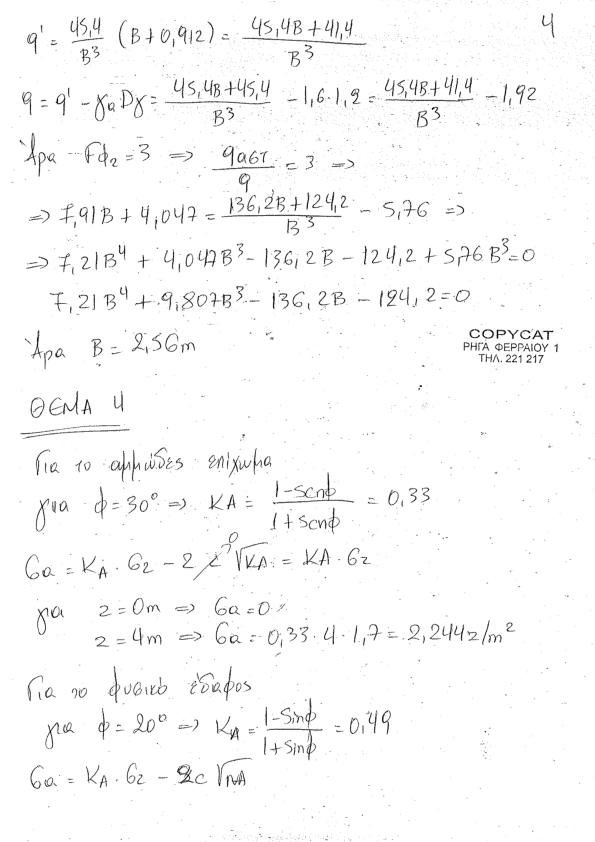 4
q' = 45,4/B³ (B+0,912) = 45,4B+41,4/B³
q = q' - γα Dγ = 45,4B+45,4/B³ - 1,6·1,2 = 45,4B+41,4/B³ - 1,92
Άρα Fφ₂ = 3 ⇒ qαστ/q = 3 ⇒
⇒ 7,91B + 4,047 = 136,2B+124,2/B³ - 5,76 ⇒
⇒ 7,21B⁴ + 4,047B³ - 136,2B - 124,2 + 5,76B³ = 0
7,21B⁴ + 9,807B³ - 136,2B - 124,2 = 0
Άρα B = 2,56m
COPYCAT
ΡΗΓΑ ΦΕΡΡΑΙΟΥ 1
ΤΗΛ. 221 217
ΘΕΜΑ 4
Για το αμμώδες επίχωμα
για φ = 30° ⇒ KA = 1-sinφ/1+sinφ = 0,33
σα = KA · σz - 2c⁰√KA = KA · σz
για z = 0m ⇒ σα = 0
z = 4m ⇒ σα = 0,33 · 4 · 1,7 = 2,244z/m²
Για το φυσικό έδαφος
για φ = 20° ⇒ KA = 1-sinφ/1+sinφ = 0,49
σα = KA · σz - 2c√KA